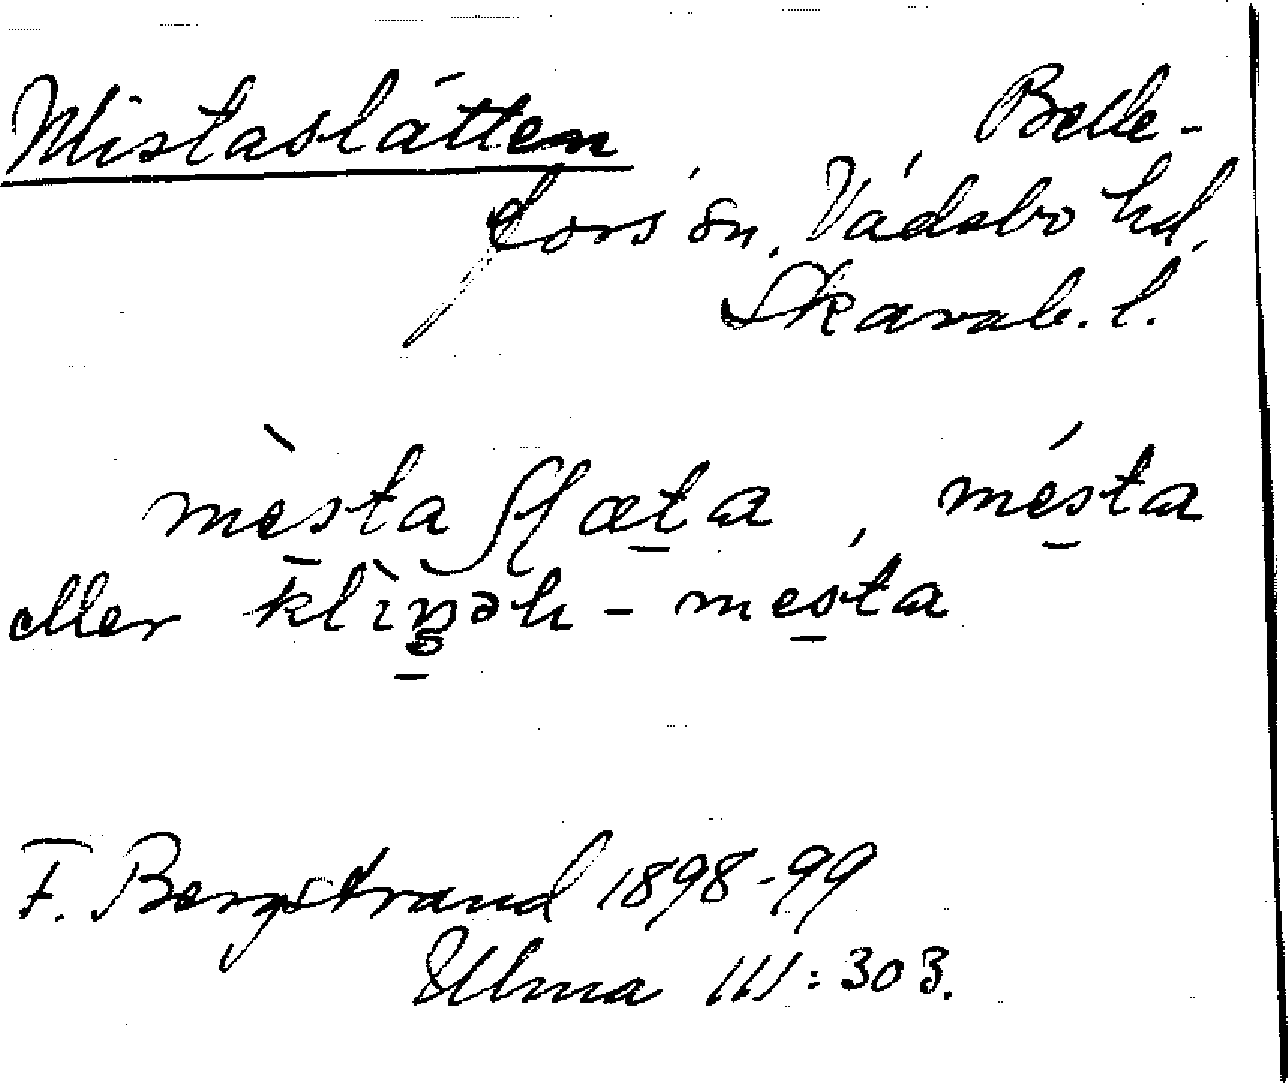 Mistaslätten Belle-
fors sn, Vadsbo hd,
Skarab. l.
mèsta ʃɭæta, mésta
eller klìŋəh - mesta
F. Bergstrand 1898-99
Ulma 111:303.